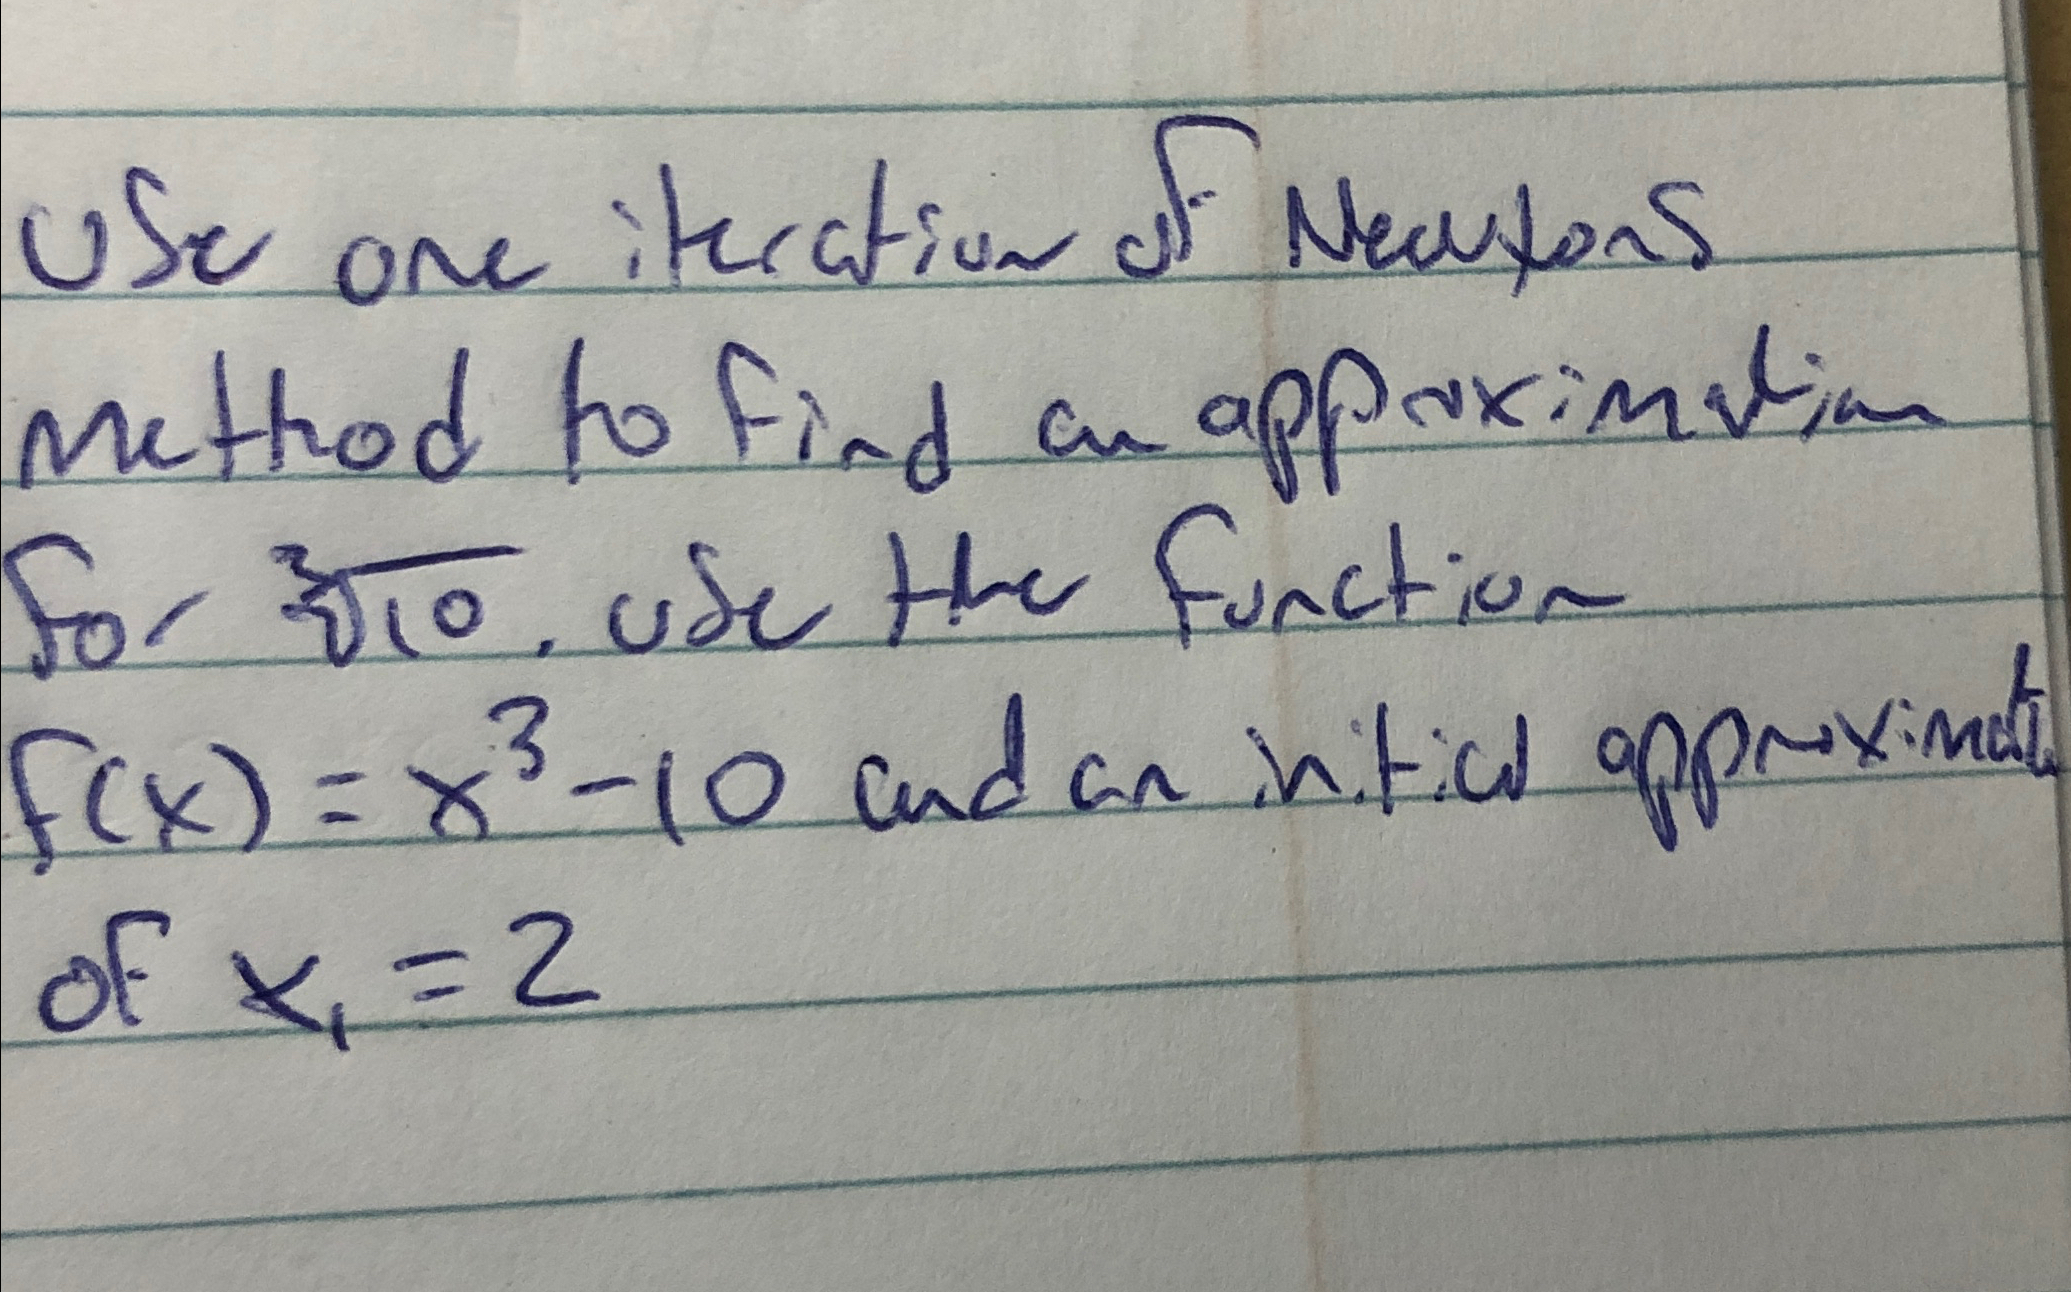 Use one iteration of Newtons
Method to find an approximation
for ∛10. use the function
f(x) = x³ - 10 and an initial approximate
of x₁ = 2